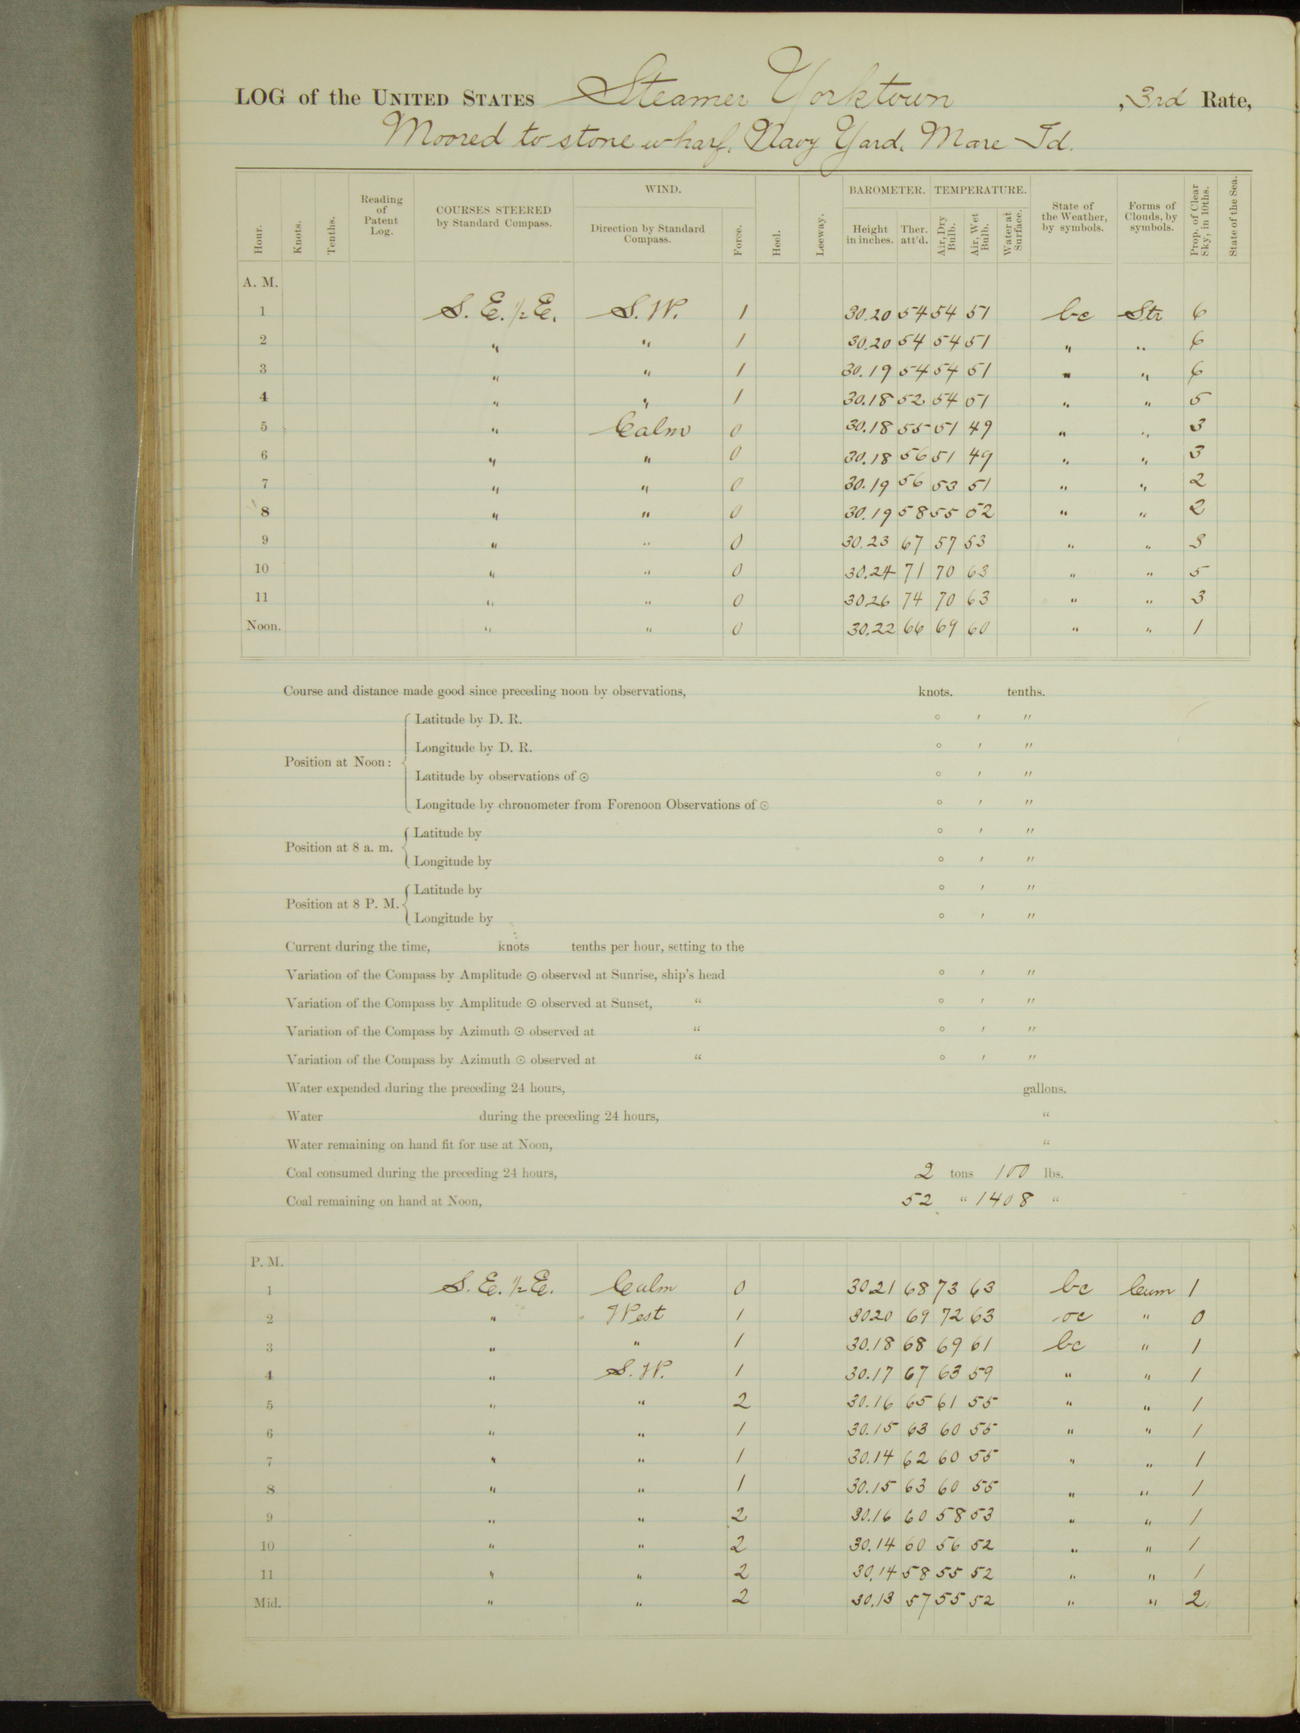 LOG of the UNITED STATES Steamer Yorktown, 3rd Rate,
Moored to stone wharf, Navy Yard, Mare Id.
Hour. Knots. Tenths. Reading of Patent Log. COURSES STEERED by Standard Compass. WIND. Direction by Standard Compass. Force. Heel. Leeway. BAROMETER. Height in inches. Ther. att'd. TEMPERATURE. Air, Dry Bulb. Air, Wet Bulb. Water at Surface. State of the Weather, by symbols. Forms of Clouds, by symbols. Prop. of Clear Sky, in 10ths. State of the Sea.
A. M.
1 S. E. 1/2 E. S. W. 1 30.20 54 54 51 bc Str 6
2 " " 1 30.20 54 54 51 " " 6
3 " " 1 30.19 54 54 51 " " 6
4 " " 1 30.18 52 54 51 " " 5
5 " Calm 0 30.18 55 51 49 " " 3
6 " " 0 30.18 56 51 49 " " 3
7 " " 0 30.19 56 53 51 " " 2
8 " " 0 30.19 58 55 52 " " 2
9 " " 0 30.23 67 57 53 " " 3
10 " " 0 30.24 71 70 63 " " 5
11 " " 0 30.26 74 70 63 " " 3
Noon. " " 0 30.22 66 69 60 " " 1
Course and distance made good since preceding noon by observations, knots. tenths.
Position at Noon: Latitude by D. R. ° ' "
Longitude by D. R. ° ' "
Latitude by observations of ⊙ ° ' "
Longitude by chronometer from Forenoon Observations of ⊙ ° ' "
Position at 8 a. m. Latitude by ° ' "
Longitude by ° ' "
Position at 8 P. M. Latitude by ° ' "
Longitude by ° ' "
Current during the time, knots tenths per hour, setting to the
Variation of the Compass by Amplitude ⊙ observed at Sunrise, ship's head ° ' "
Variation of the Compass by Amplitude ⊙ observed at Sunset, " ° ' "
Variation of the Compass by Azimuth ⊙ observed at " ° ' "
Variation of the Compass by Azimuth ⊙ observed at " ° ' "
Water expended during the preceding 24 hours, gallons.
Water during the preceding 24 hours, "
Water remaining on hand fit for use at Noon, "
Coal consumed during the preceding 24 hours, 2 tons 100 lbs.
Coal remaining on hand at Noon, 52 " 1408 "
P. M.
1 S. E. 1/2 E. Calm 0 30.21 68 73 63 bc Cum 1
2 " West 1 3020 69 72 63 oc " 0
3 " " 1 30.18 68 69 61 bc " 1
4 " S. W. 1 30.17 67 63 59 " " 1
5 " " 2 30.16 65 61 55 " " 1
6 " " 1 30.15 63 60 55 " " 1
7 " " 1 30.14 62 60 55 " " 1
8 " " 1 30.15 63 60 55 " " 1
9 " " 2 30.16 60 58 53 " " 1
10 " " 2 30.14 60 56 52 " " 1
11 " " 2 30.14 58 55 52 " " 1
Mid. " " 2 30.13 57 55 52 " " 2